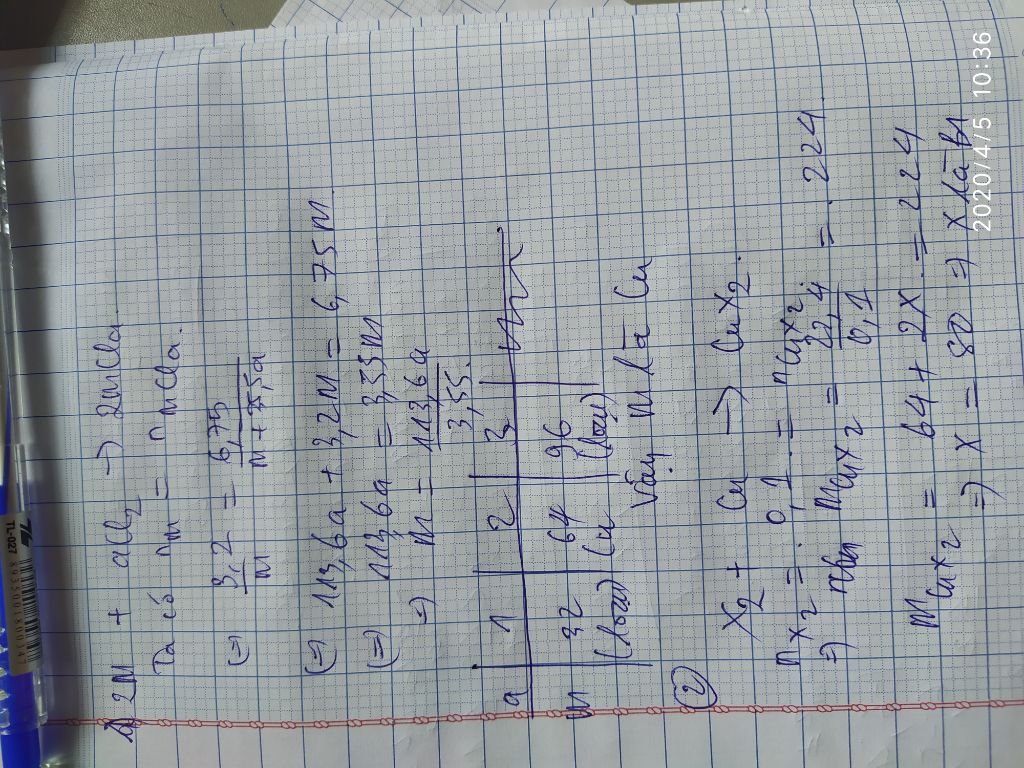 1) 2M + aCl2 → 2MCla.
Ta có nM = nMCla.
(=) 3,2/M = 6,75/M+35,5a
(=) 113,6a + 3,2M = 6,75M.
(=) 113,6a = 3,55M
=) M = 113,6a/3,55.
a 1 2 3
M 32 64 96
(loại) Cu (loại)
Vậy M là Cu
(2)
X2 + Cu → CuX2.
nX2 = 0,1 = nCuX2.
=) MCuX2 = 22,4/0,1 = 224.
MCuX2 = 64 + 2X = 224
=) X = 80 =) X là Br
2020/4/5 10:36
TL-027